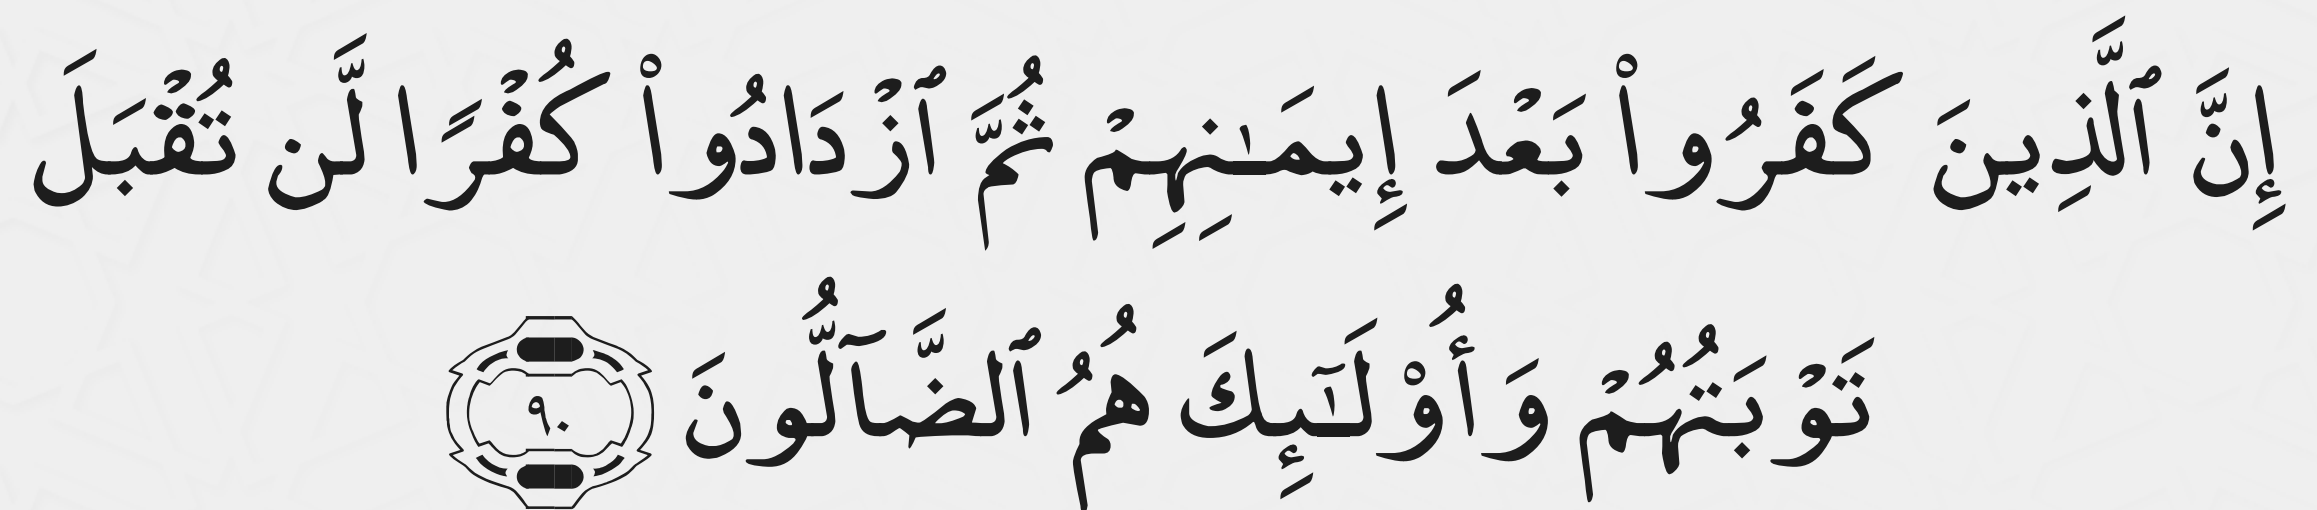 إِنَّ ٱلَّذِينَ كَفَرُوا۟ بَعْدَ إِيمَـٰنِهِمْ ثُمَّ ٱزْدَادُوا۟ كُفْرًا لَّن تُقْبَلَ
تَوْبَتُهُمْ وَأُو۟لَـٰٓئِكَ هُمُ ٱلضَّآلُّونَ ٩٠